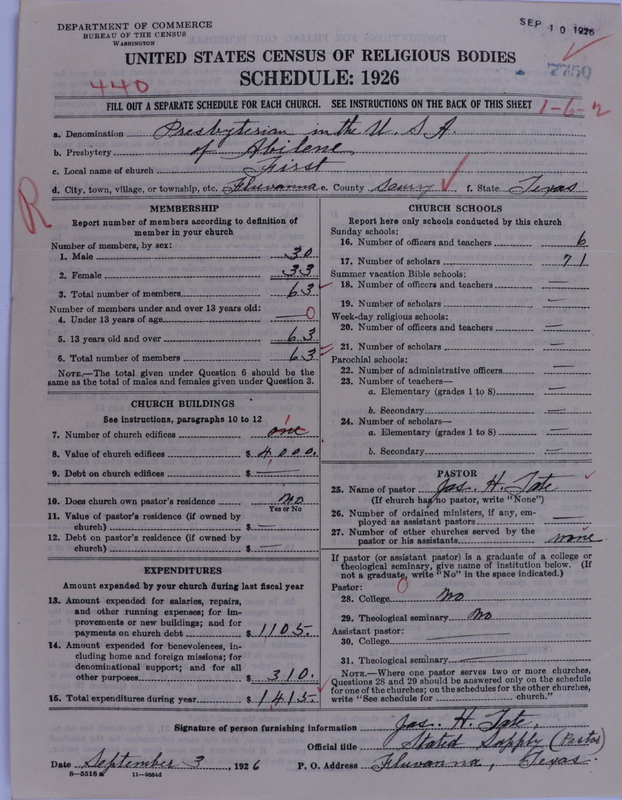 DEPARTMENT OF COMMERCE
BUREAU OF THE CENSUS
WASHINGTON
SEP 10 1926
UNITED STATES CENSUS OF RELIGIOUS BODIES
SCHEDULE: 1926
440
FILL OUT A SEPARATE SCHEDULE FOR EACH CHURCH. SEE INSTRUCTIONS ON THE BACK OF THIS SHEET
1-6-2
a. Denomination Presbyterian in the U. S. A.
b. Presbytery of Abilene
c. Local name of church First
d. City, town, village, or township, etc. Fluvanna e. County Scurry f. State Texas
R
MEMBERSHIP
Report number of members according to definition of
member in your church
Number of members, by sex:
1. Male 30
2. Female 33
3. Total number of members 63
Number of members under and over 13 years old:
4. Under 13 years of age — 0
5. 13 years old and over 63
6. Total number of members 63
NOTE.—The total given under Question 6 should be
same as the total of males and females given under Question 3.
CHURCH BUILDINGS
See instructions, paragraphs 10 to 12
7. Number of church edifices one 1
8. Value of church edifices $ 4,000.
9. Debt on church edifices $ —
10. Does church own pastor's residence No
Yes or No
11. Value of pastor's residence (if owned by
church) $ —
12. Debt on pastor's residence (if owned by
church) $ —
EXPENDITURES
Amount expended by your church during last fiscal year
13. Amount expended for salaries, repairs,
and other running expenses; for im-
provements or new buildings; and for
payments on church debt $ 1105.
14. Amount expended for benevolences, in-
cluding home and foreign missions; for
denominational support; and for all
other purposes $ 310.
15. Total expenditures during year $ 1415
CHURCH SCHOOLS
Report here only schools conducted by this church
Sunday schools:
16. Number of officers and teachers 6
17. Number of scholars 71
Summer vacation Bible schools:
18. Number of officers and teachers —
19. Number of scholars —
Week-day religious schools:
20. Number of officers and teachers —
21. Number of scholars —
Parochial schools:
22. Number of administrative officers —
23. Number of teachers—
a. Elementary (grades 1 to 8) —
b. Secondary —
24. Number of scholars—
a. Elementary (grades 1 to 8) —
b. Secondary —
PASTOR
25. Name of pastor Jas. H. Tate
(If church has no pastor, write "None")
26. Number of ordained ministers, if any, em-
ployed as assistant pastors —
27. Number of other churches served by the
pastor or his assistants none
If pastor (or assistant pastor) is a graduate of a college or
theological seminary, give name of institution below. (If
not a graduate, write "No" in the space indicated.)
Pastor: 0
28. College No
29. Theological seminary No
Assistant pastor:
30. College —
31. Theological seminary —
NOTE.—Where one pastor serves two or more churches,
Questions 28 and 29 should be answered only on the schedule
for one of the churches; on the schedules for the other churches,
write "See schedule for church."
Signature of person furnishing information Jas. H. Tate,
Official title Stated Supply (Pastor)
Date September 3, 1926 P. O. Address Fluvanna, Texas.
8—5518 a 11—9084d